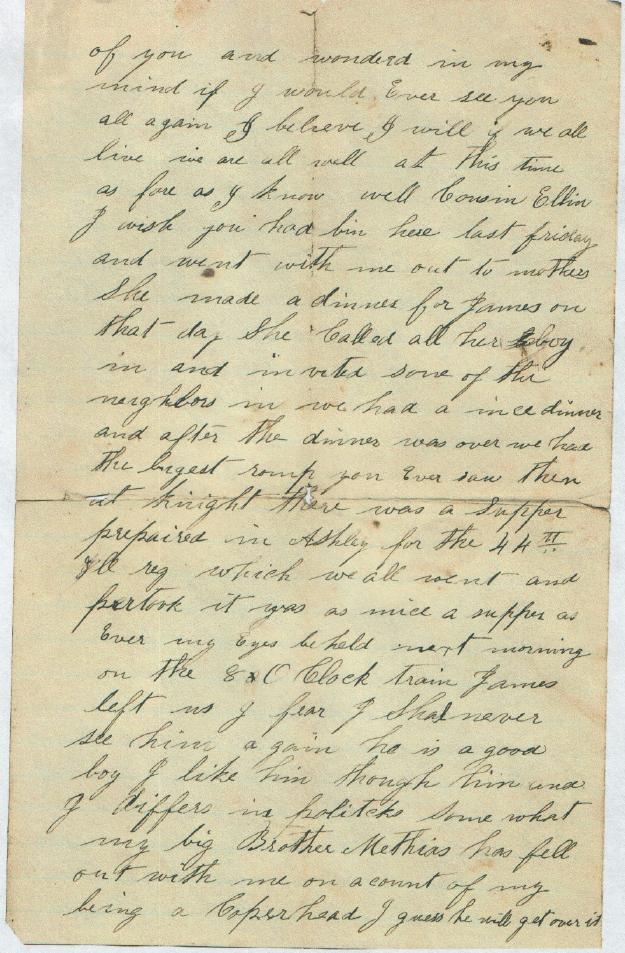 of you and wonderd in my
mind if I would Ever see you
all again I beleive I will if we all
live we are all well at this time
as fore as I know well Cousin Ellin
I wish you had bin here last friday
and went with me out to mothers
She made a dinner for James on
that day She Called all her boy
in and invited some of the
neighbors in we had a nice dinner
and after the dinner was over we had
the bigest romp you Ever saw then
at knight there was a Supper
prepaired in Ashley for the 44th
Ill reg which we all went and
pertook it was as nice a supper as
Ever my Eyes beheld next morning
on the 8 O Clock train James
left us I fear I Shal never
see him again he is a good
boy I like him though him and
I differs in politcks some what
my big Brother Methias has fell
out with me on acount of my
being a Coperhead I guess he will get over it